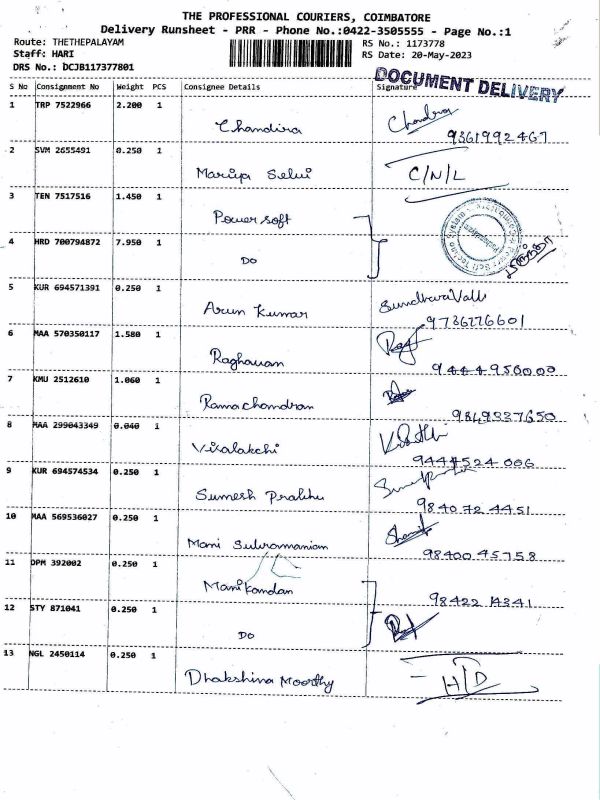 THE PROFESSIONAL COURIERS, COIMBATORE
Delivery Runsheet - PRR - Phone No.:0422-3505555 - Page No.:1
Route: THETHEPALAYAM
RS No.: 1173778
Staff: HARI
RS Date: 20-May-2023
DRS No.: DCJB117377801
DOCUMENT DELIVERY
S No Consignment No Weight PCS Consignee Details Signature
1 TRP 7522966 2.200 1 Chandira Chandra
9361992467
2 SVM 2655491 0.250 1 Mariya Selvi C/N/L
3 TEN 7517516 1.450 1 Power soft
4 HRD 700794872 7.950 1 DO
5 KUR 694571391 0.250 1 Arun Kumar SundharaValli
9736276601
6 MAA 570350117 1.580 1 Raghavan
9444950000
7 KMU 2512610 1.060 1 Ramachandran
9869337650
8 MAA 299043349 0.040 1 Visalakchi
9444524006
9 KUR 694574534 0.250 1 Sumesh Prabhu
9840724451
10 MAA 569536027 0.250 1 Mani Subramaniam
9840045758
11 DPM 392002 0.250 1 Manikandan
98422 14341
12 STY 871041 0.250 1 DO
13 NGL 2450114 0.250 1 Dhakshina Moorthy H/D